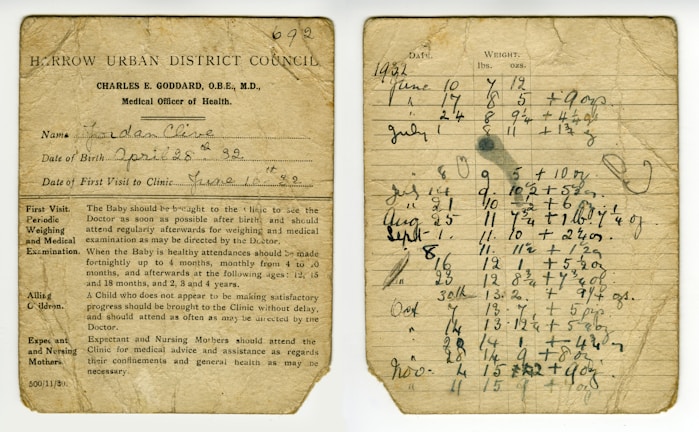 692
HARROW URBAN DISTRICT COUNCIL
CHARLES E. GODDARD, O.B.E., M.D.,
Medical Officer of Health.
Name Jordan Clive
Date of Birth April 28th 32
Date of First Visit to Clinic June 10th 32
First Visit.
Periodic
Weighing
and Medical
Examination.
The Baby should be brought to the Clinic to see the
Doctor as soon as possible after birth, and should
attend regularly afterwards for weighing and medical
examination as may be directed by the Doctor.
When the Baby is healthy attendances should be made
fortnightly up to 4 months, monthly from 4 to
months, and afterwards at the following ages: 12, 15
and 18 months, and 2, 3 and 4 years.
Ailing
Children.
A Child who does not appear to be making satisfactory
progress should be brought to the Clinic without delay,
and should attend as often as may be directed by the
Doctor.
Expectant
and Nursing
Mothers.
Expectant and Nursing Mothers should attend the
Clinic for medical advice and assistance as regards
their confinements and general health as may be
necessary.
500/11/30.
DATE. WEIGHT.
lbs. ozs.
1932
June 10 7 12
" 17 8 5 + 9 ozs.
" 24 8 9¼ + 4¼
July 1 8 11 + 1¾
" 8 9 5 + 10 oz
July 14 9. 10½ + 5½
" 21 10 + 6
Aug 25 11 7¼ + 1 lb 7¼ oz.
Sept 1. 11. 10 + 2¾ oz.
" 8 11. 11½ + 1½
" 16 12 1 + 5½ oz
" 23 12 8¾ + 7¾ oz
30th 13. 2. + 9¼ ozs.
Oct 7 13. 7 + 5
" 14 13. 12¼ + 5¼
" 20 14 1 + 4¾
" 28 14 9 + 8 oz.
Nov. 4 15 2 + 9 oz.
" 11 15 9 +